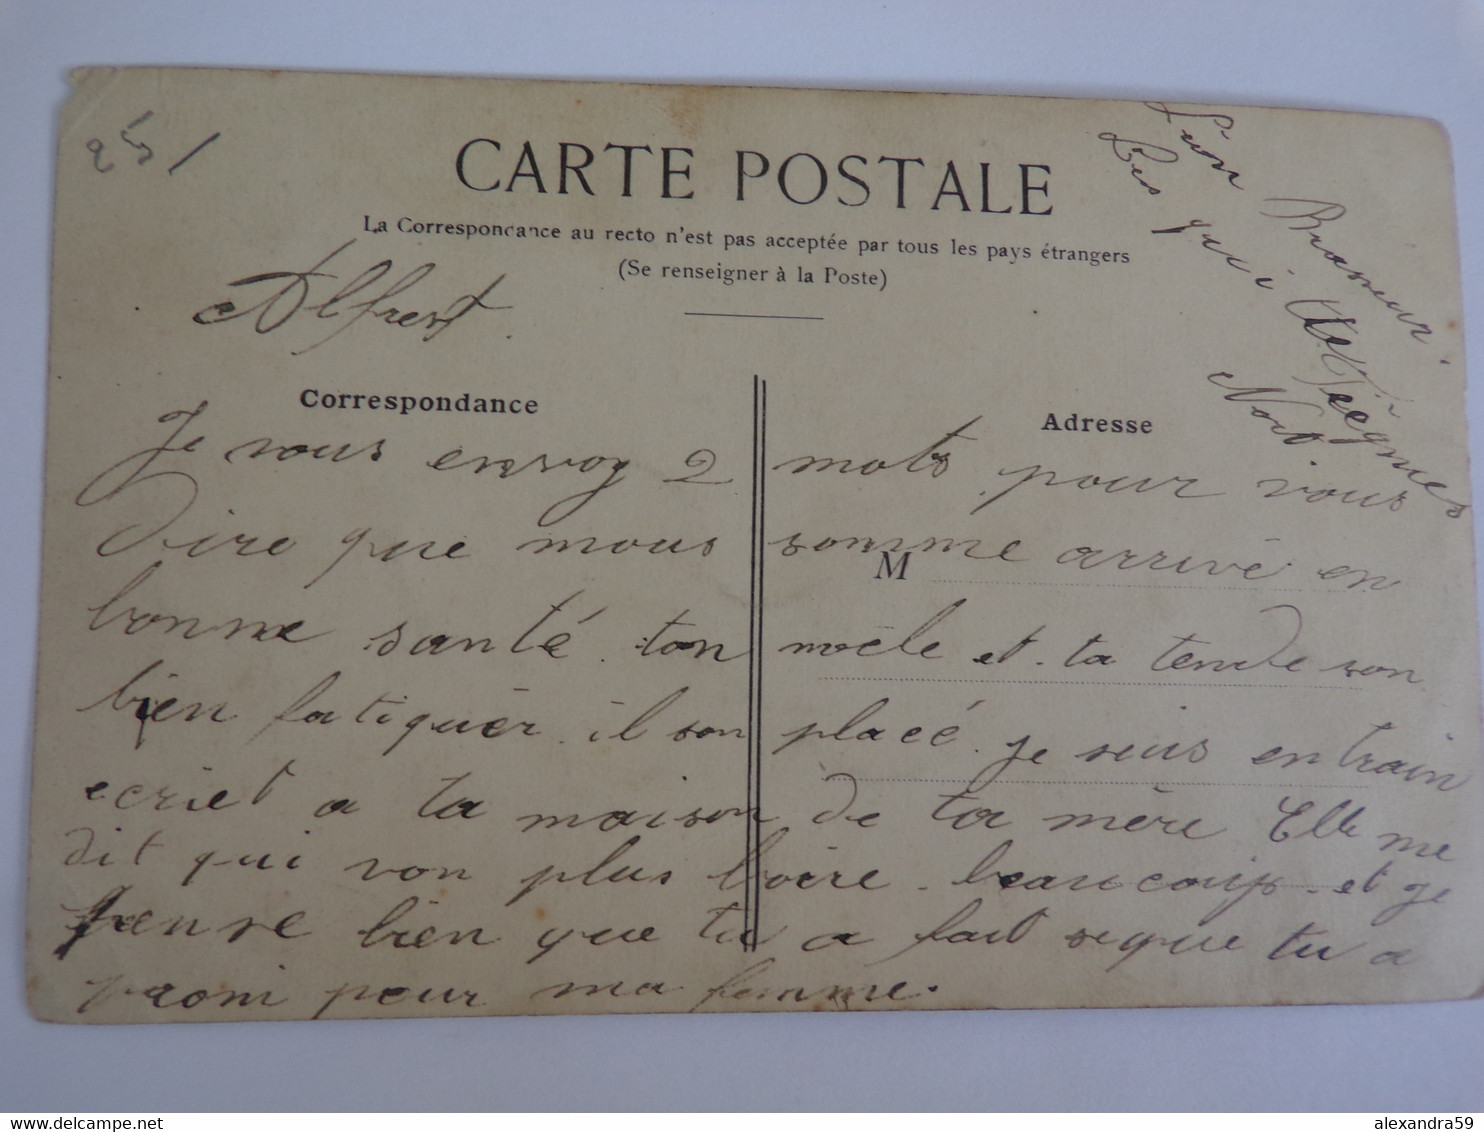 CARTE POSTALE
La Correspondance au recto n'est pas acceptée par tous les pays étrangers
(Se renseigner à la Poste)
Alfrest
Léon Brasseur.
Nord
Correspondance
Adresse
M
Je vous envoy 2 mots pour vous
dire que nous somme arrivé en
bonne santé. ton et ta tende son
bien fatiquér. il son placé. je suis en train
ecriet a ta maison de ta mère Elle me
dit qui von plus boire. beaucoup. et je
pense bien que tu a fait se que tu a
promi pour ma femme.
delcampe.net
alexandra59